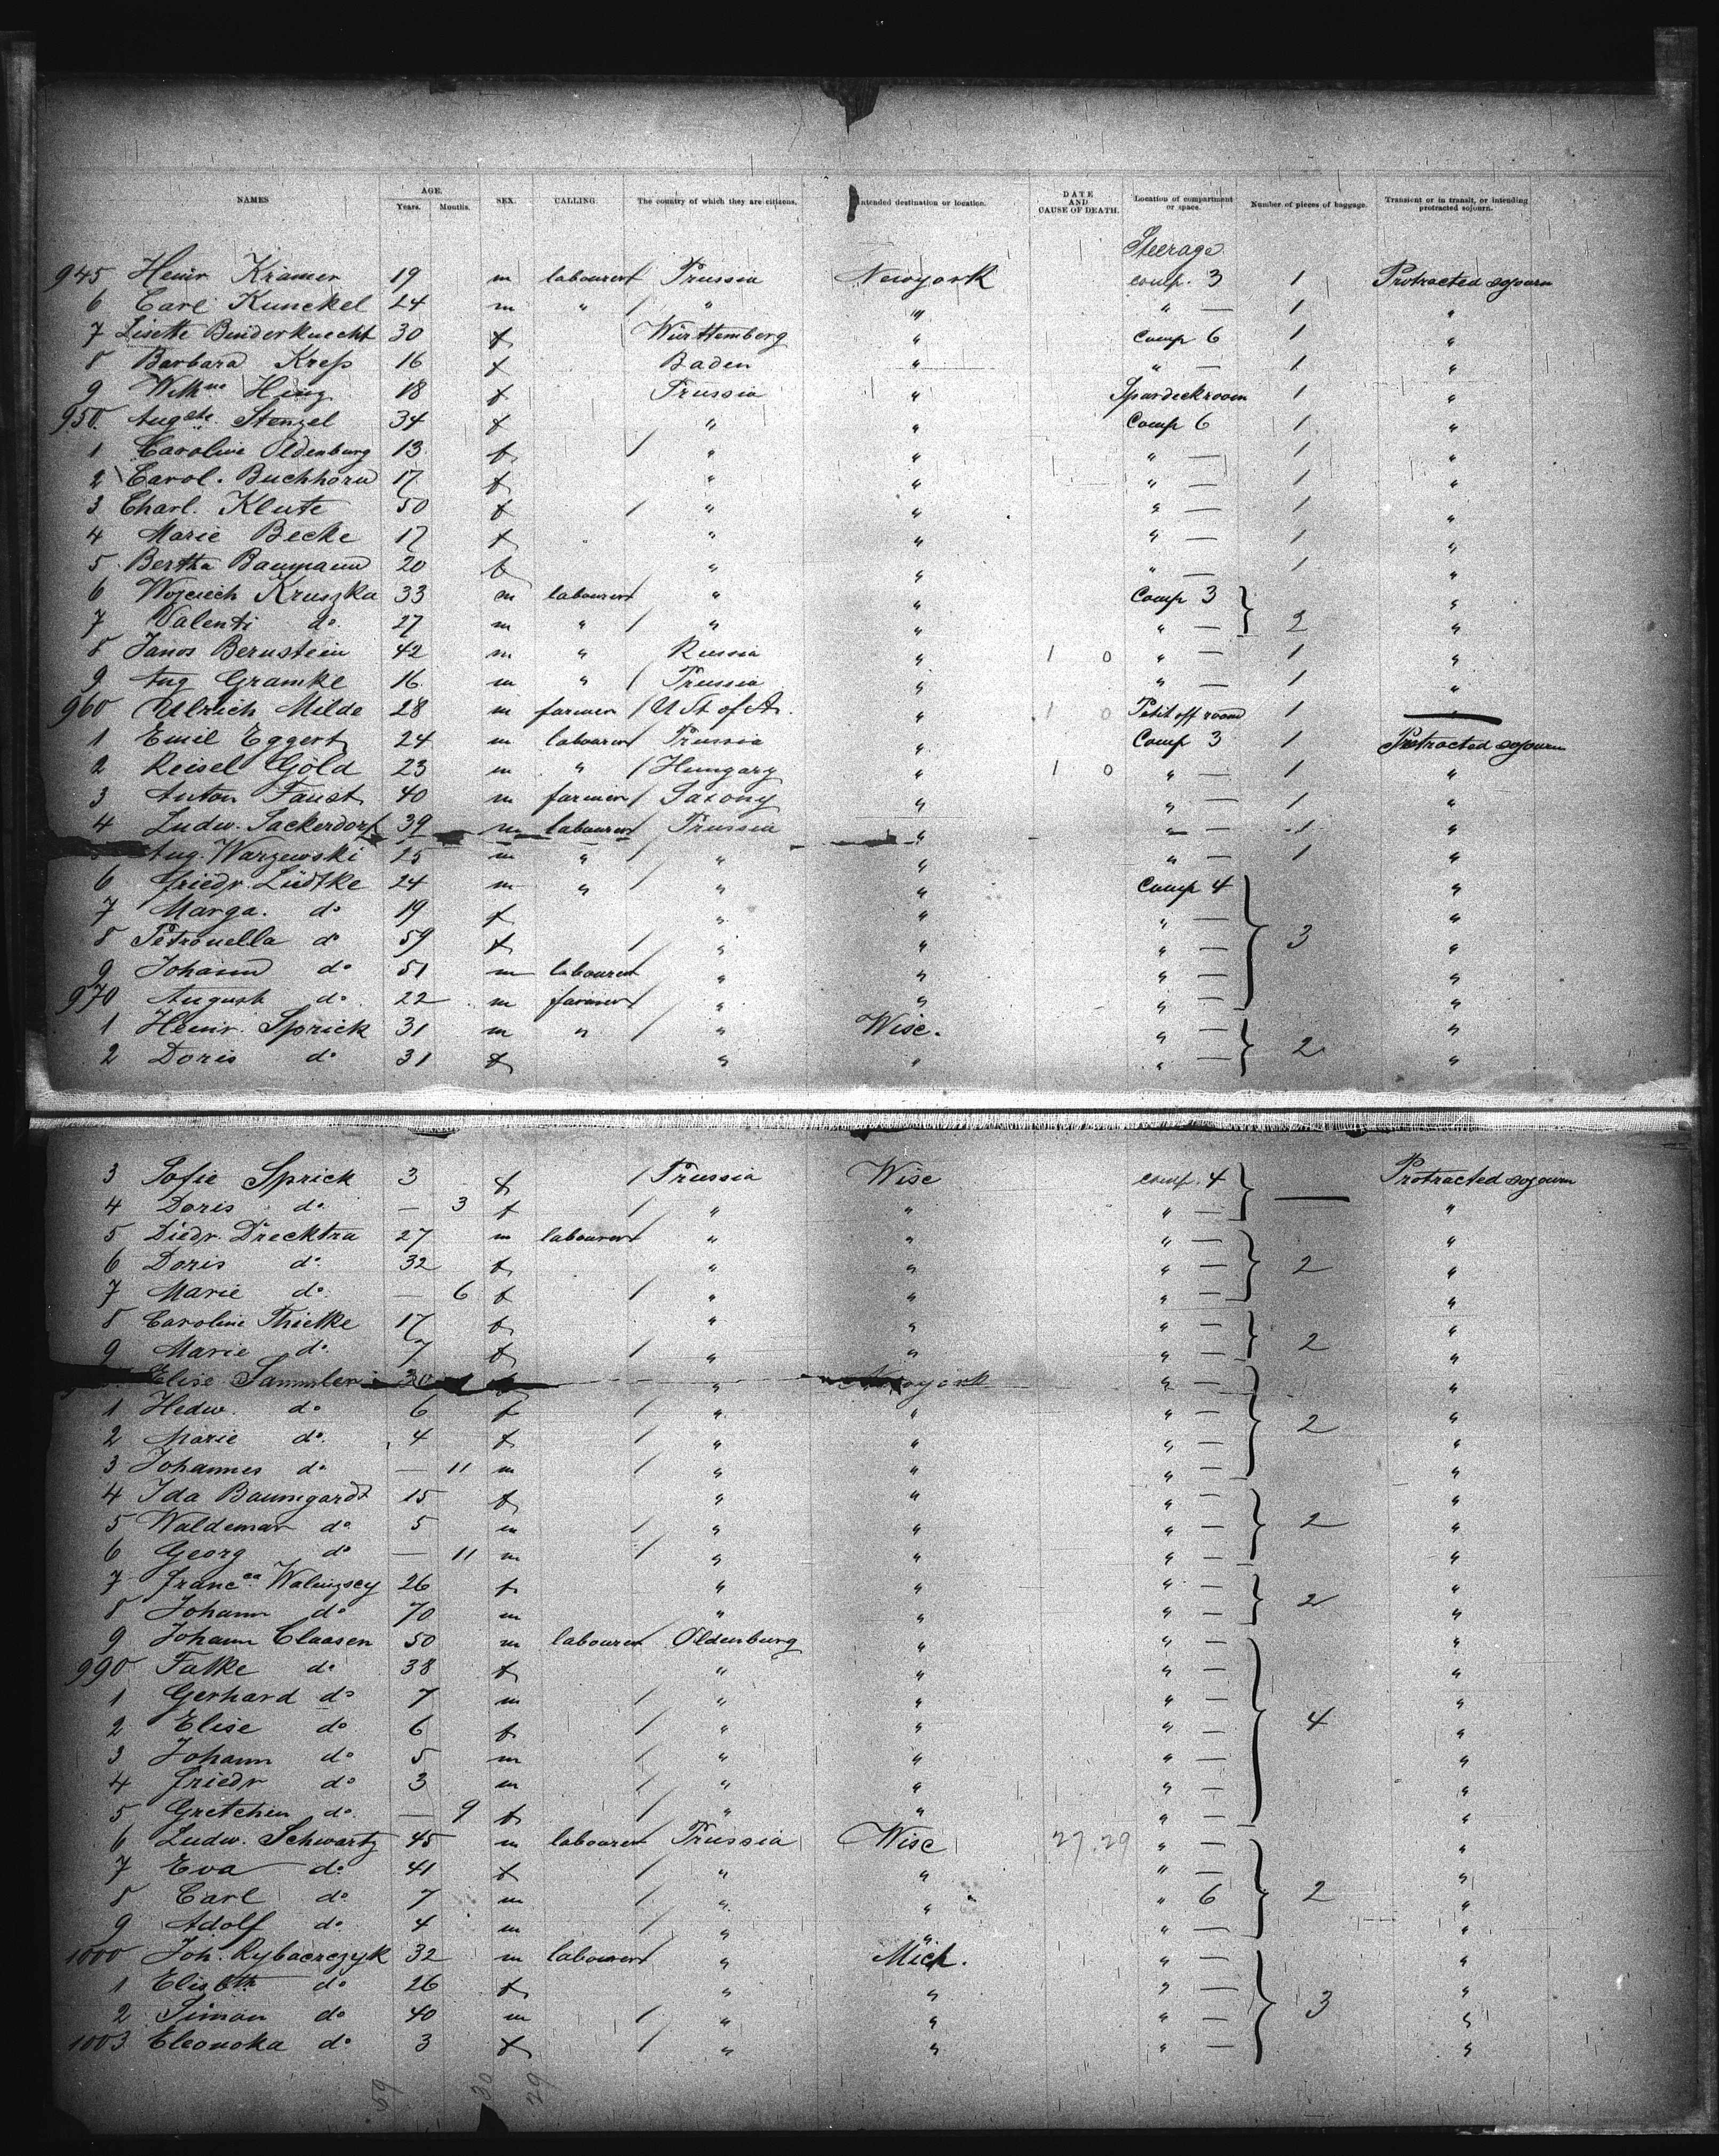 NAMES AGE. Years. Months. SEX. CALLING The country of which they are citizens. Intended destination or location. DATE AND CAUSE OF DEATH. Location of compartment or space. Number of pieces of baggage. Transient or in transit, or intending protracted sojourn.
Steerage
945 Heinr Kramer 19 m labourer Prussia Newyork comp. 3 1 Protracted sojourn
6 Carl Kunckel 24 m " / " " " — 1 "
7 Lisette Binderknecht 30 f Württemberg " Comp 6 1 "
8 Barbara Kreß 16 f Baden " " — 1 "
9 Wilhne Hing 18 f Prussia " Spardeckroom 1 "
950. Augste. Stenzel 34 f " " Comp 6 1 "
1 Caroline Oldenburg 13 f / " " " — 1 "
2 Carol. Buchhorn 17 f " " " — 1 "
3 Charl. Klute 50 f / " " " — 1 "
4 Marie Becke 17 f " " " — 1 "
5 Bertha Baumann 20 f " " " — 1 "
6 Wojciech Kruszka 33 m labourer " " Comp 3 "
7 Valenti do 27 m " / " " " — 2 "
8 Janos Bernstein 42 m " Russia " 1 0 " — 1 "
9 Aug Gramke 16 m " / Prussia " " — 1 "
960 Ulrich Milde 28 m farmer / U St of A. " 1 0 Petit off room 1 —
1 Emil Eggert 24 m labourer Prussia " Comp 3 1 Protracted sojourn
2 Reisel Gold 23 m " / Hungary " 1 0 " — 1 "
3 Anton Faust 40 m farmer / Saxony " " — 1 "
4 Ludw. Sackerdorf 39 m labourer Prussia " " — 1 "
Aug. Warzewski 25 m " / " " " — 1 "
6 Friedr. Lüdtke 24 m " / " " Comp 4 "
7 Marga. do 19 f " " " — "
8 Petronella do 59 f / " " " — 3 "
9 Johann do 51 m labourer " " " — "
970 August do 22 m farmer " " " — "
1 Heinr. Sprick 31 m " / " Wisc. " — "
2 Doris do 31 f " " " — 2 "
3 Sofie Sprick 3 f / Prussia Wisc comp. 4 — Protracted sojourn
4 Doris do — 3 f / " " " — "
5 Diedr. Drecktra 27 m labourer " " " — "
6 Doris do 32 f " " " — 2 "
7 Marie do — 6 f / " " " — "
8 Caroline Thielke 17 f " " " — "
9 Marie do 7 f / " " " — 2 "
Elise Sammler 30 f " Newyork " — "
1 Hedw. do 6 f / " " " — 2 "
2 Marie do 4 f / " " " — "
3 Johannes do — 11 m / " " " — "
4 Ida Baumgardt 15 f " " " — "
5 Waldemar do 5 m / " " " — 2 "
6 Georg do — 11 m / " " " — "
7 Francca Walingsey 26 f " " " — "
8 Johann do 70 m " " " — 2 "
9 Johann Claasen 50 m labourer Oldenburg " " — "
990 Falke do 38 f " " " — "
1 Gerhard do 7 m / " " " — "
2 Elise do 6 f / " " " — 4 "
3 Johann do 5 m / " " " — "
4 Friedr do 3 m / " " " — "
5 Gretchen do — 9 f / " " " — "
6 Ludw. Schwartz 45 m labourer Prussia Wisc 27.29 " — "
7 Eva do 41 f / " " " — "
8 Carl do 7 m / " " " 6 2 "
9 Adolf do 4 m / " " " — "
1000 Joh. Rybaerczyk 32 m labourer " Mich. " — "
1 Elisbth do 26 f " " " — "
2 Simon do 40 m / " " " — 3 "
1003 Eleonoka do 3 f / " " " — "
59 30 29